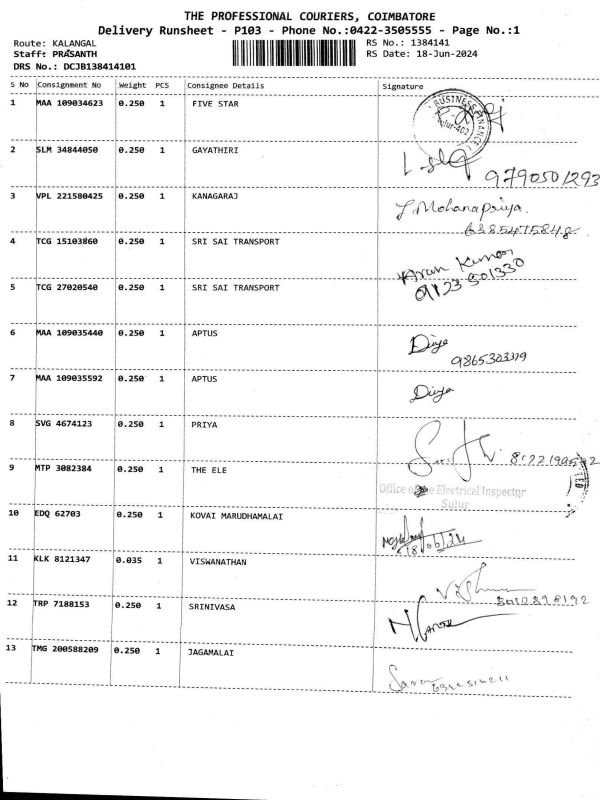 THE PROFESSIONAL COURIERS, COIMBATORE
Delivery Runsheet - P103 - Phone No.:0422-3505555 - Page No.:1
Route: KALANGAL RS No.: 1384141
Staff: PRASANTH RS Date: 18-Jun-2024
DRS No.: DCJB138414101
S No Consignment No Weight PCS Consignee Details Signature
1 MAA 109034623 0.250 1 FIVE STAR BUSINESS FINANCE
2 SLM 34844050 0.250 1 GAYATHIRI
9790501293
3 VPL 221580425 0.250 1 KANAGARAJ J. Mohanapriya.
6385475848
4 TCG 15103860 0.250 1 SRI SAI TRANSPORT Arun Kumar
5 TCG 27020540 0.250 1 SRI SAI TRANSPORT 9123501330
6 MAA 109035440 0.250 1 APTUS Divya
9865303319
7 MAA 109035592 0.250 1 APTUS Divya
8 SVG 4674123 0.250 1 PRIYA
9 MTP 3082384 0.250 1 THE ELE
Office of the Electrical Inspector
Sulur
10 EDQ 62703 0.250 1 KOVAI MARUDHAMALAI
18/06/24
11 KLK 8121347 0.035 1 VISWANATHAN
12 TRP 7188153 0.250 1 SRINIVASA
13 TMG 200588209 0.250 1 JAGAMALAI